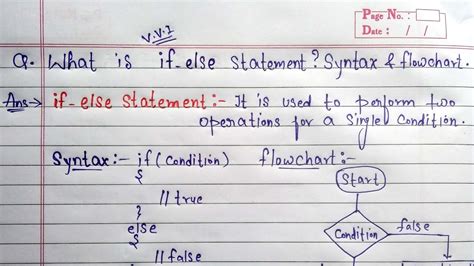 Page No. :
Date : / /
V.V.I
Q. What is if-else statement? Syntax & flowchart.
Ans→ if-else Statement :- It is used to perform two
operations for a Single Condition.
Syntax :- if (Condition) flowchart :-
{
Start
// true
}
Condition false
else
{
// false